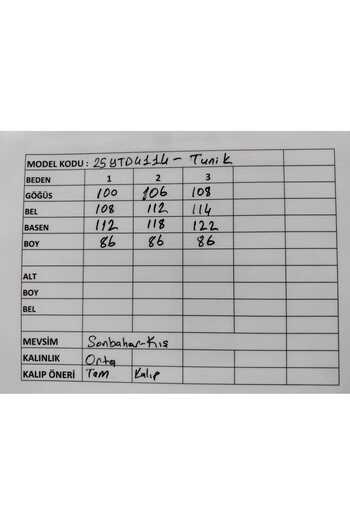 MODEL KODU : 25YTD4114 - Tunik
BEDEN 1 2 3
GÖĞÜS 100 106 108
BEL 108 112 114
BASEN 112 118 122
BOY 86 86 86
ALT
BOY
BEL
MEVSİM Sonbahar-Kış
KALINLIK Orta
KALIP ÖNERİ Tam Kalıp